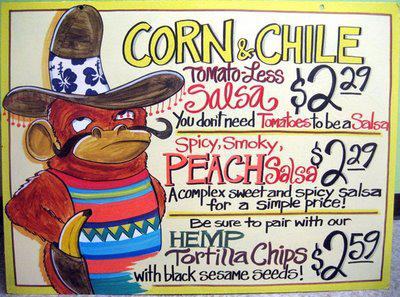 CORN & CHILE
Tomato-Less
Salsa $2.29
You don't need Tomatoes to be a Salsa
Spicy, Smoky,
PEACH Salsa $2.29
A complex sweet and spicy salsa
for a simple price!
Be sure to pair with our
HEMP
Tortilla Chips $2.59
with black sesame seeds!